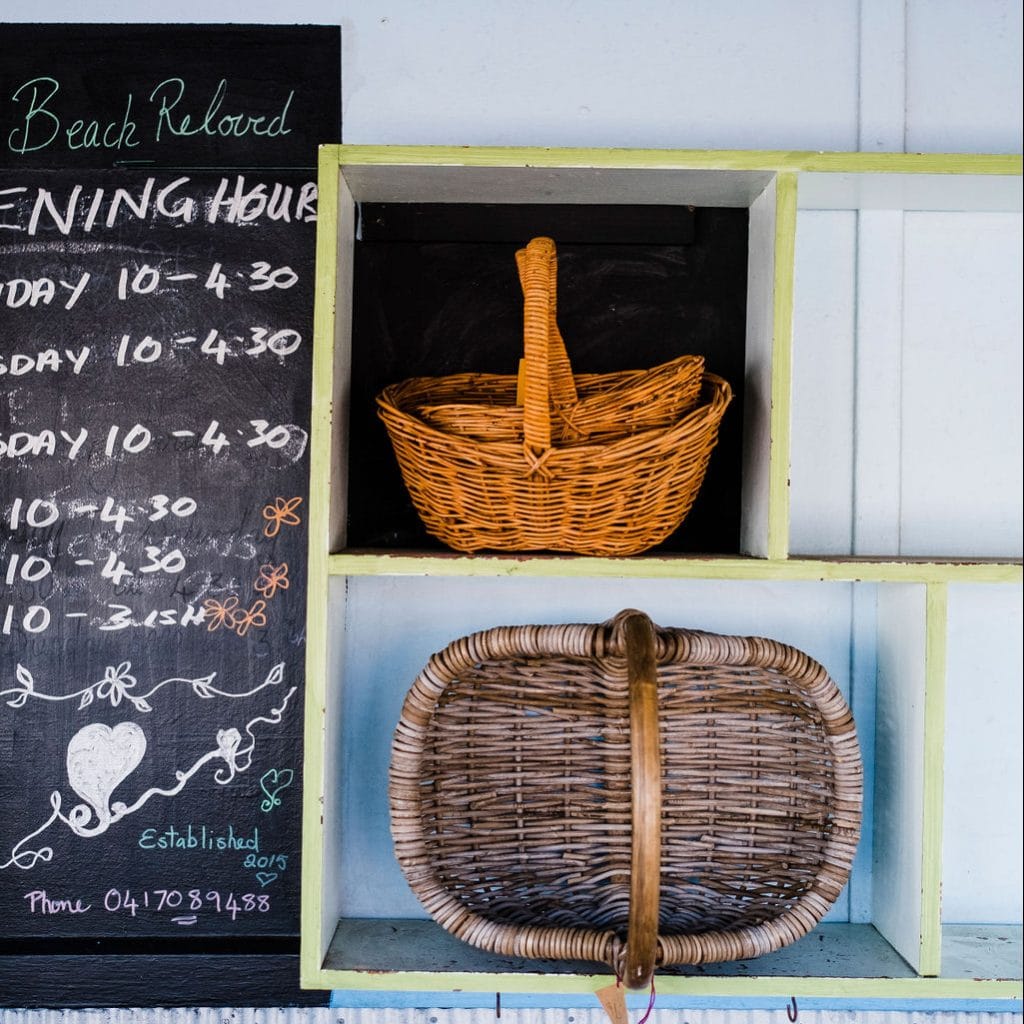 Beach Reloved
ENING HOUR
DAY 10-4.30
SDAY 10-4.30
SDAY 10-4.30
10-4.30
10-4.30
10-3.ISH
Established
2015
Phone 0417089488